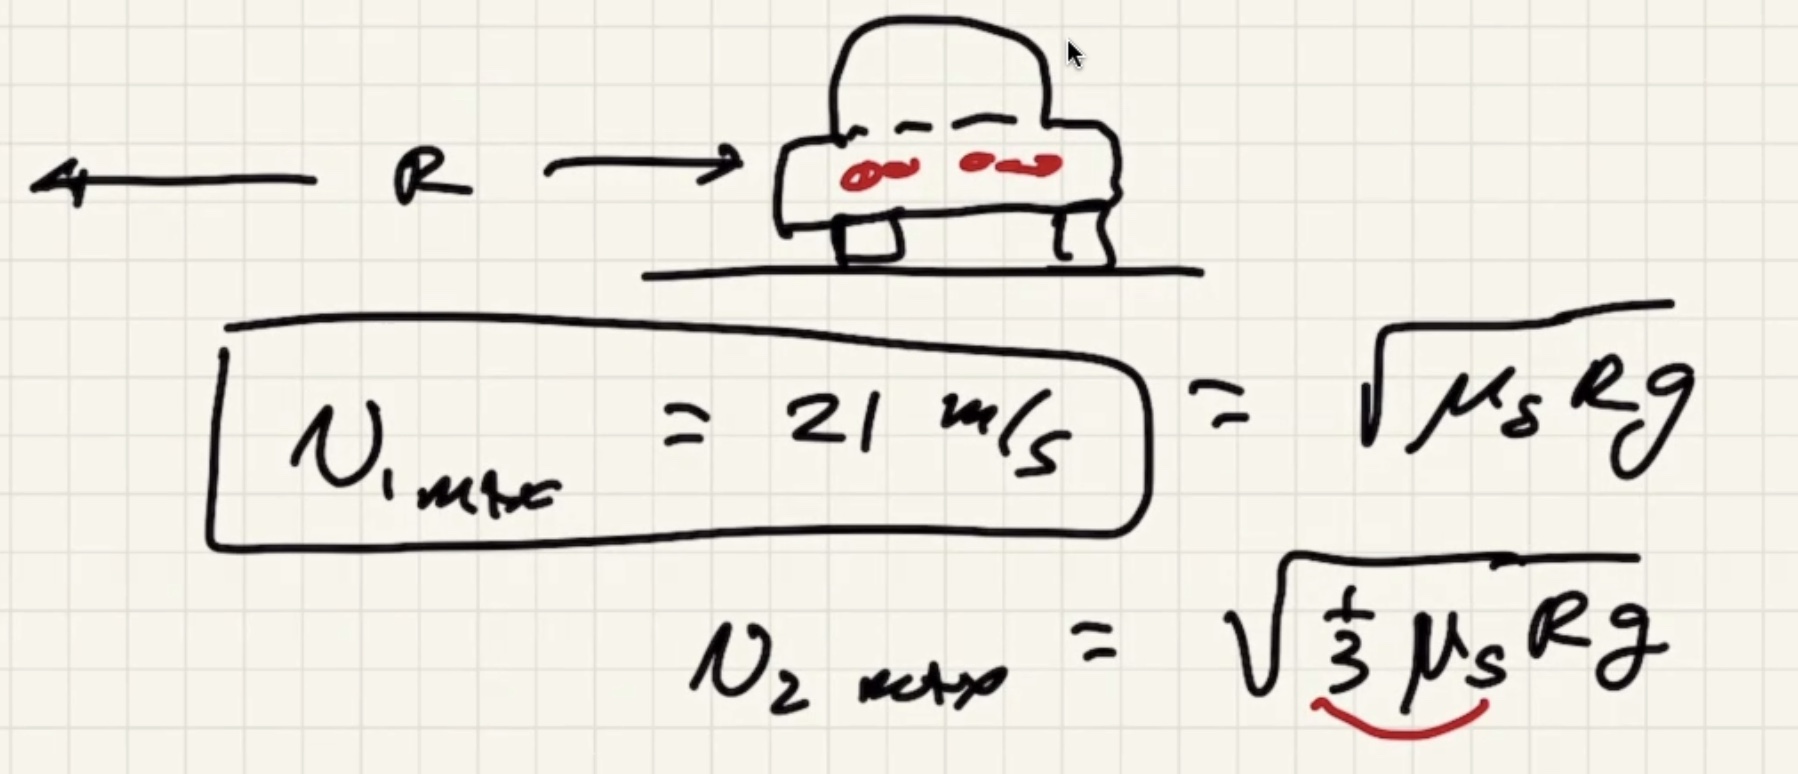 R
v₁ max = 21 m/s = √(μₛ R g)
v₂ max = √(1/3 μₛ R g)